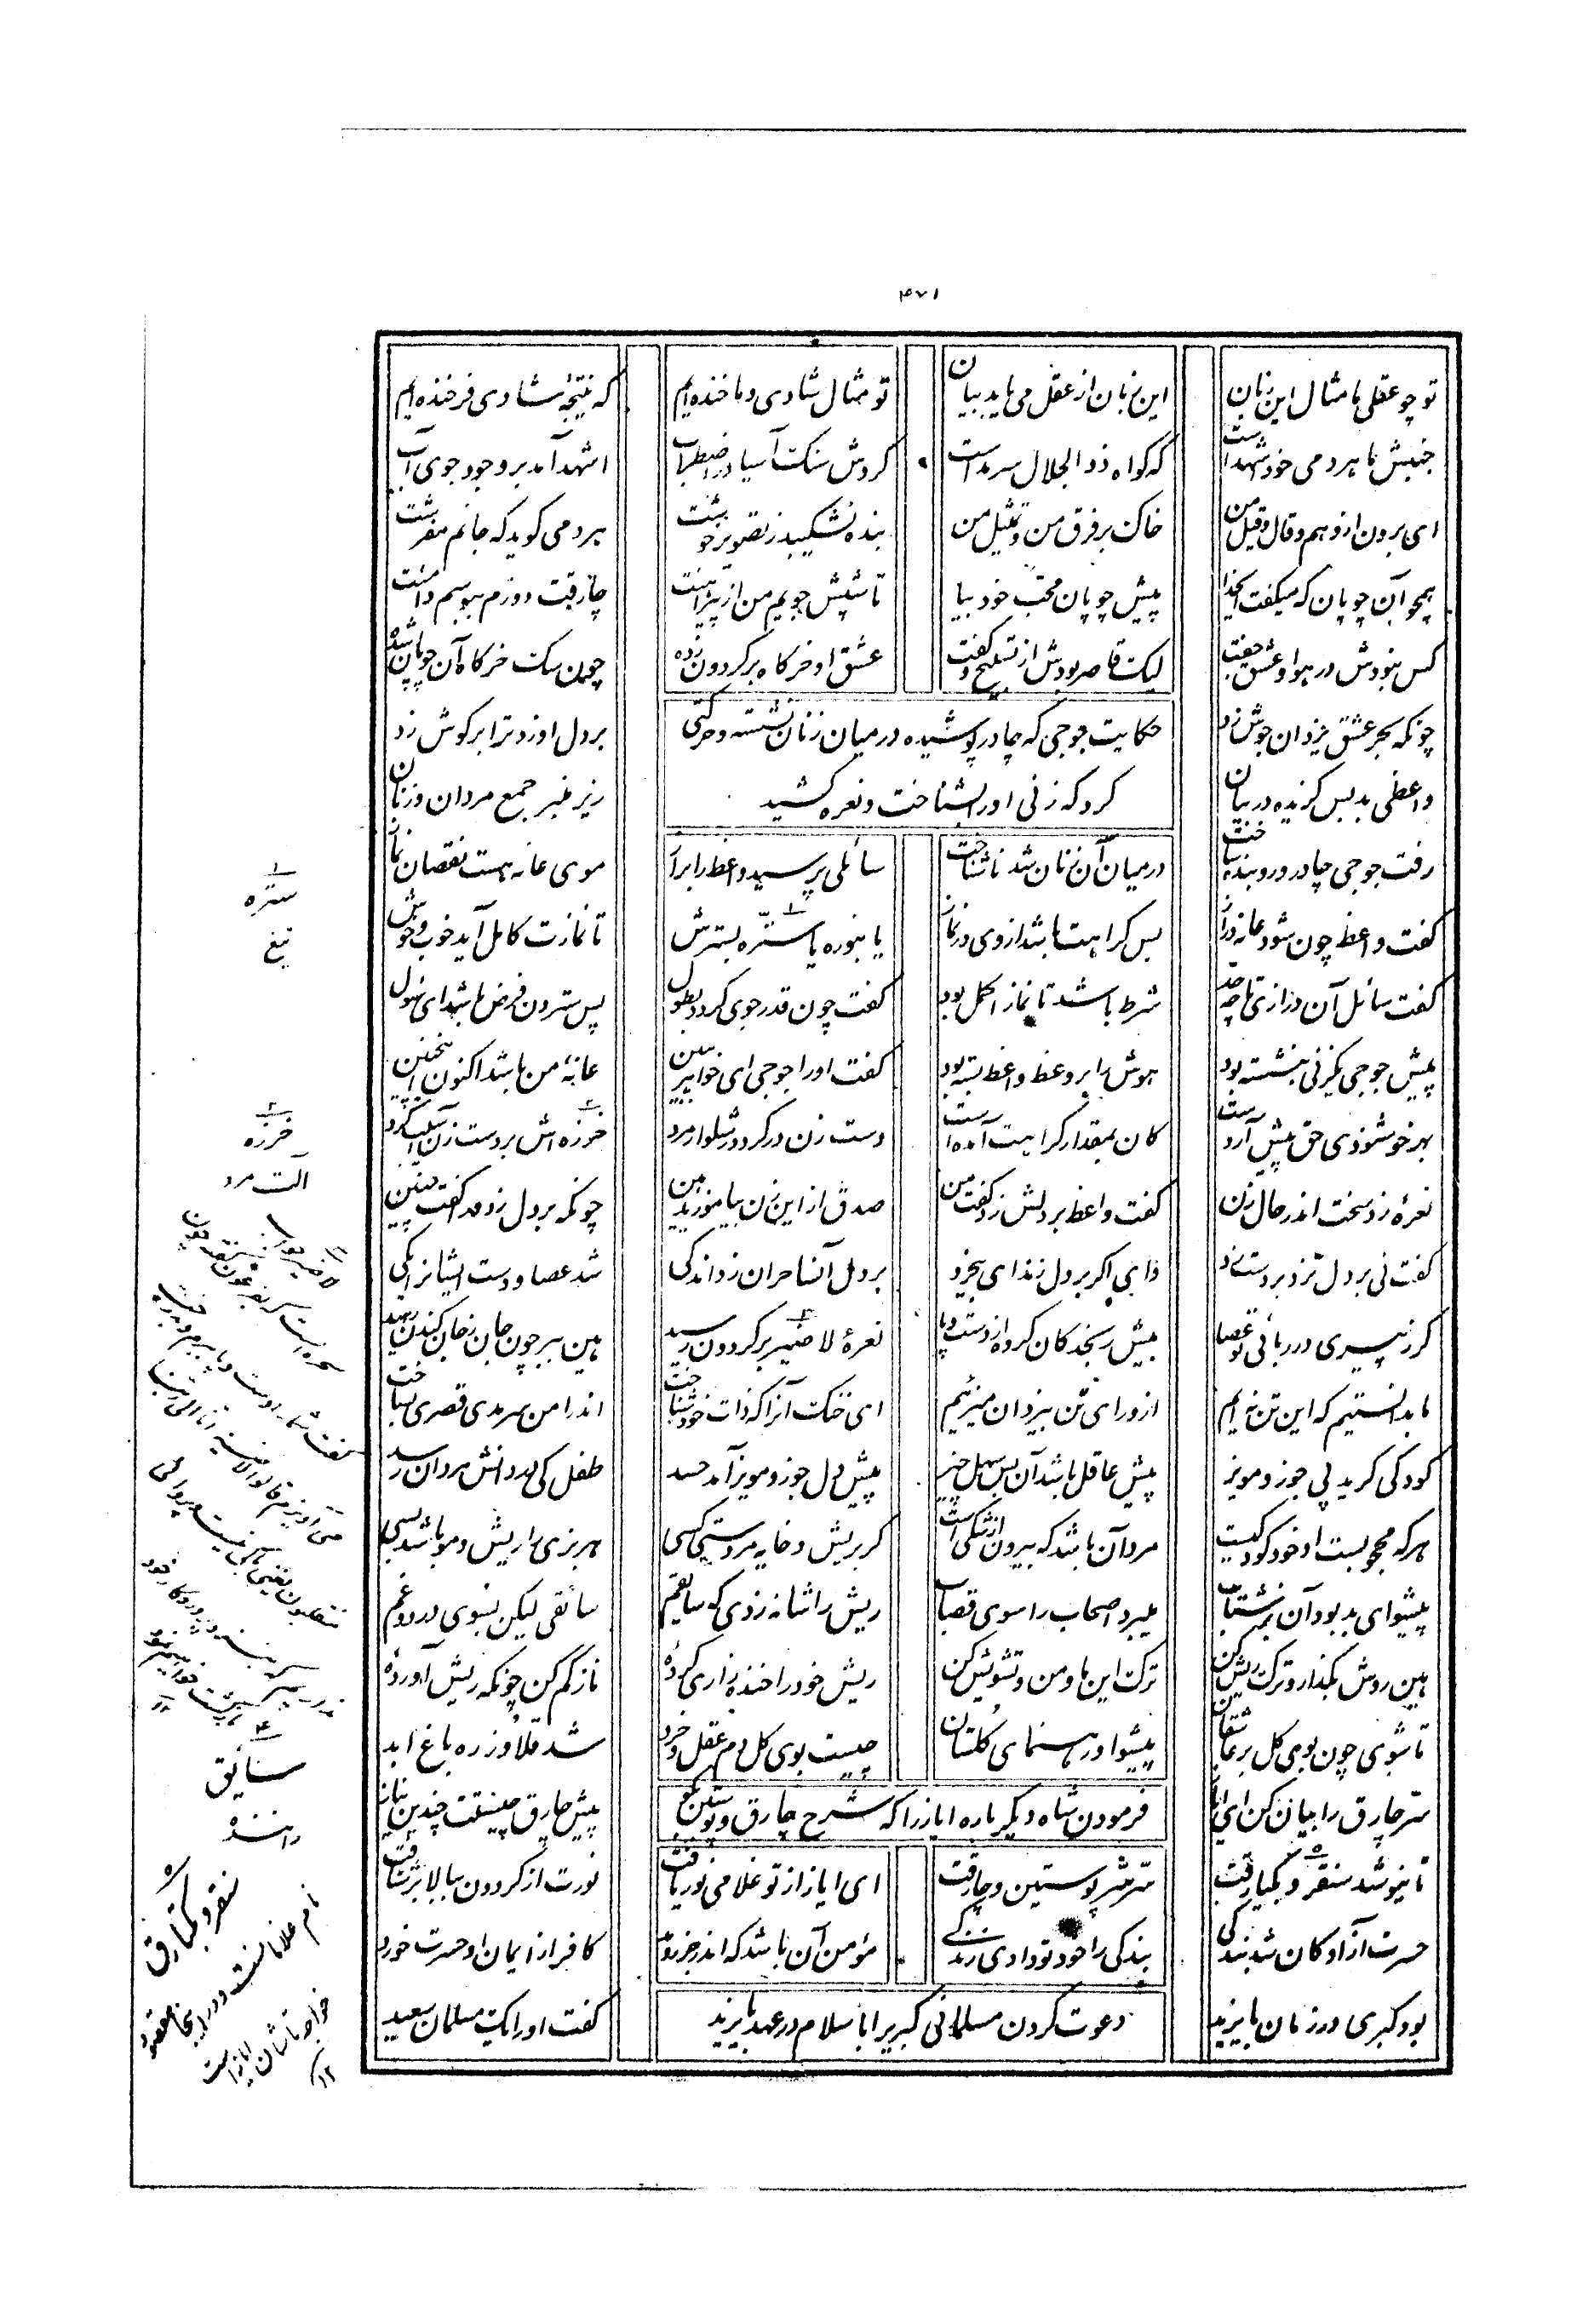 ۴۷۱
تو چو عقلی ما مثال این زبان این زبان از عقل می یابد بیان تو مثال شادی و ما خنده ایم که نتیجهٔ شادی فرخنده ایم
جنبش ما هر دمی خود اشهد است که گواه ذوالجلال سرمد است گردش سنگ آسیا در اضطراب اشهد آمد بر وجود جوی آب
ای برون از وهم و قال و قیل من خاک بر فرق من و تمثیل من بنده نشکیبد ز تصویر خوشت هر دمی گوید که جانم مفرشت
همچو آن چوپان که میگفت ای خدا پیش چوپان محب خود بیا تا شپش جویم من از پیراهنت چارقت دوزم ببوسم دامنت
کس نبودش در هوا و عشق جفت لیک قاصر بودش از تسبیح و گفت عشق او خرگاه بر گردون زده چون سگ خرگاه آن چوپان شده
چونکه بحر عشق یزدان جوش زد بر دل او زد ترا بر گوش زد
حکایت جوحی که چادر پوشیده در میان زنان نشسته و حرکتی
کرد که زنی او را بشناخت و نعره کشید
واعظی بد بس گزیده در بیان زیر منبر جمع مردان و زنان
رفت جوحی چادر و روبند ساخت در میان آن زنان شد ناشناخت سائلی پرسید واعظ را براز موی عانه هست نقصان نماز
گفت واعظ چون شود عانه دراز بس کراهت باشد از وی در نماز یا بنوره یا ستره بسترش تا نمازت کامل آید خوب و خوش
گفت سائل آن درازی تا چه حد شرط باشد تا نماز اکمل بود گفت چون قدر جوی گردد بطول پس ستردن فرض باشد ای سئول
پیش جوحی یکزنی بنشسته بود هوش را بر وعظ واعظ بسته بود گفت او را جوحی ای خواهر ببین عانهٔ من باشد اکنون اینچنین
بهر خوشنودی حق پیش آر دست کان بمقدار کراهت آمده است دست زن در کرد در شلوار مرد خرزه اش بر دست زن آسیب کرد
نعرهٔ زد سخت اندر حال زن گفت واعظ بر دلش زد گفت من صدق از این زن بیاموزید هین چونکه بر دل زد ورا گفت چنین
گفت نی بر دل نزد بر دست زد وای اگر بر دل زدی ای بیخرد بر دل آن ساحران زد اندکی شد عصا و دست ایشانرا یکی
گر ز پیری در ربائی تو عصا بیش رنجد کان گروه از دست و پا نعرهٔ لا ضیر بر گردون رسید هین ببر چون جان ز جان کندن رهید
ما بدانستیم که این تن نه ایم از ورای تن بیزدان میزئیم ای خنک آنرا که ذات خود شناخت اندر امن سرمدی قصری بساخت
کودکی گرید پی جوز و مویز پیش عاقل باشد آن بس سهل چیز پیش دل جوز و مویز آمد جسد طفل کی در دانش مردان رسد
هر که محجوبست او خود کودکیست مرد آن باشد که بیرون از شکی است گر بریش و خایه مردستی کسی هر بزی را ریش و مو باشد بسی
پیشوای بد بود آن بز شتاب میبرد اصحاب را سوی قصاب ریش را شانه زدی که سایقم سائقی لیکن بسوی درد و غم
هین روش بگذار و ترک ریش کن ترک این ما و من و تشویش کن ریش خود را خنده زاری کردهٔ ناز کم کن چونکه ریش آوردهٔ
تا شوی چون بوی گل بر عاشقان پیشوا و رهنمای گلستان چیست بوی گل دم عقل و خرد شد قلاوز ره باغ ابد
فرمودن شاه دیگر باره ایاز را که شرح چارق و پوستین بگو
سر چارق را بیان کن ای ایاز پیش چارق چیستت چندین نیاز
تا نیوشد سنقر و بکیارقت سر سر پوستین و چارقت ای ایاز از تو غلامی نور یافت نورت از گردون ببالا بر شتافت
حسرت آزادگان شد بندگی بندگی را خود تو دادی زندگی مؤمن آن باشد که اندر جزر و مد کافر از ایمان او حسرت خورد
دعوت کردن مسلمانی گبری را باسلام در عهد بایزید
بود گبری در زمان بایزید گفت او را یک مسلمان سعید
۱
ستره
تیغ
۲
خرزه
آلت مرد
۳
لا ضیر
۴
سائق
راننده
۵
سنقر و بکیارق
نام غلامانست و در اینجا مقصود
خواجه تاشان ایاز است
۱۲